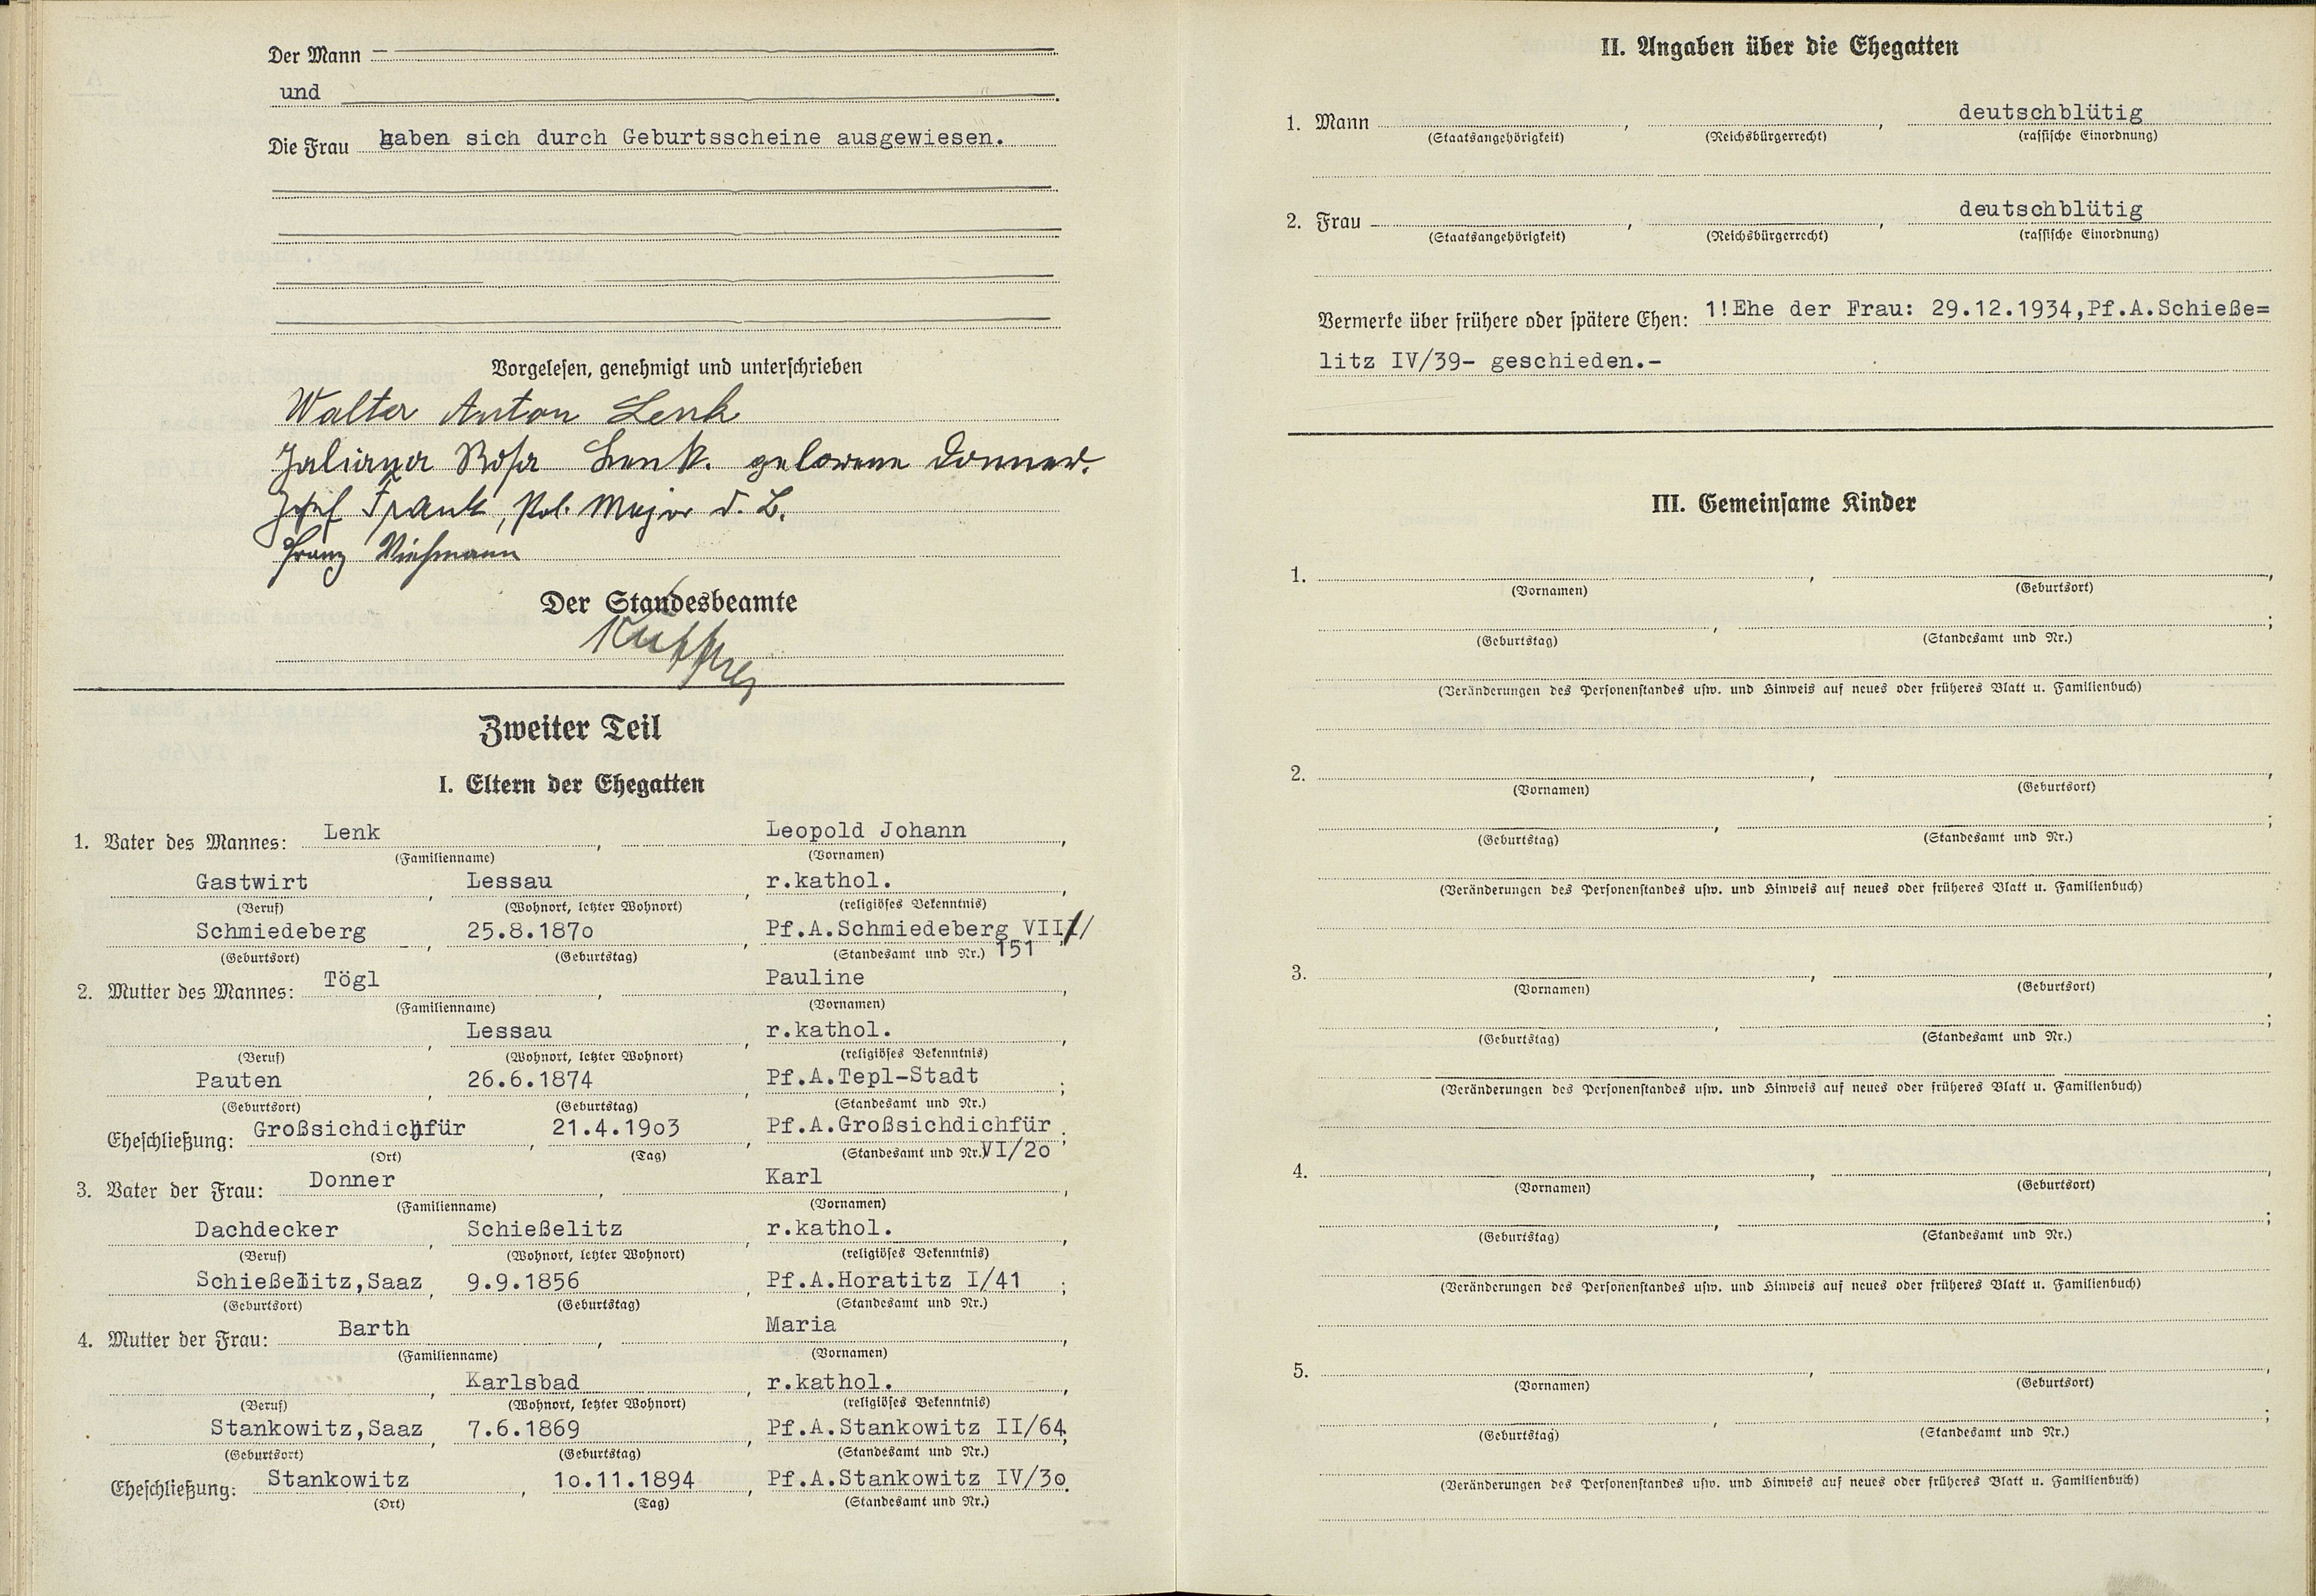 Der Mann
und
Die Frau haben sich durch Geburtsscheine ausgewiesen.
Vorgelesen, genehmigt und unterschrieben
Walter Anton Lenk
Juliana Rosa Lenk. geborene Donner.
Josef Frank, Pol. Major d. L.
Franz Wiesmann
Der Standesbeamte
Zweiter Teil
I. Eltern der Ehegatten
1. Vater des Mannes: Lenk, Leopold Johann,
(Familienname) (Vornamen)
Gastwirt, Lessau, r.kathol.,
(Beruf) (Wohnort, letzter Wohnort) (religiöses Bekenntnis)
Schmiedeberg, 25.8.1870, Pf.A.Schmiedeberg VIII/
(Geburtsort) (Geburtstag) (Standesamt und Nr.) 151
2. Mutter des Mannes: Tögl, Pauline,
(Familienname) (Vornamen)
, Lessau, r.kathol.,
(Beruf) (Wohnort, letzter Wohnort) (religiöses Bekenntnis)
Pauten, 26.6.1874, Pf.A.Tepl-Stadt;
(Geburtsort) (Geburtstag) (Standesamt und Nr.)
Eheschließung: Großsichdichfür, 21.4.1903, Pf.A.Großsichdichfür;
(Ort) (Tag) (Standesamt und Nr.) VI/20
3. Vater der Frau: Donner, Karl,
(Familienname) (Vornamen)
Dachdecker, Schießelitz, r.kathol.,
(Beruf) (Wohnort, letzter Wohnort) (religiöses Bekenntnis)
Schießelitz,Saaz, 9.9.1856, Pf.A.Horatitz I/41;
(Geburtsort) (Geburtstag) (Standesamt und Nr.)
4. Mutter der Frau: Barth, Maria,
(Familienname) (Vornamen)
, Karlsbad, r.kathol.,
(Beruf) (Wohnort, letzter Wohnort) (religiöses Bekenntnis)
Stankowitz,Saaz, 7.6.1869, Pf.A.Stankowitz II/64;
(Geburtsort) (Geburtstag) (Standesamt und Nr.)
Eheschließung: Stankowitz, 10.11.1894, Pf.A.Stankowitz IV/30.
(Ort) (Tag) (Standesamt und Nr.)
II. Angaben über die Ehegatten
1. Mann , , deutschblütig
(Staatsangehörigkeit) (Reichsbürgerrecht) (rassische Einordnung)
2. Frau , , deutschblütig
(Staatsangehörigkeit) (Reichsbürgerrecht) (rassische Einordnung)
Vermerke über frühere oder spätere Ehen: 1!Ehe der Frau: 29.12.1934,Pf.A.Schieße=
litz IV/39- geschieden.-
III. Gemeinsame Kinder
1. , ,
(Vornamen) (Geburtsort)
, ;
(Geburtstag) (Standesamt und Nr.)
(Veränderungen des Personenstandes usw. und Hinweis auf neues oder früheres Blatt u. Familienbuch)
2. , ,
(Vornamen) (Geburtsort)
, ;
(Geburtstag) (Standesamt und Nr.)
(Veränderungen des Personenstandes usw. und Hinweis auf neues oder früheres Blatt u. Familienbuch)
3. , ,
(Vornamen) (Geburtsort)
, ;
(Geburtstag) (Standesamt und Nr.)
(Veränderungen des Personenstandes usw. und Hinweis auf neues oder früheres Blatt u. Familienbuch)
4. , ,
(Vornamen) (Geburtsort)
, ;
(Geburtstag) (Standesamt und Nr.)
(Veränderungen des Personenstandes usw. und Hinweis auf neues oder früheres Blatt u. Familienbuch)
5. , ,
(Vornamen) (Geburtsort)
, ;
(Geburtstag) (Standesamt und Nr.)
(Veränderungen des Personenstandes usw. und Hinweis auf neues oder früheres Blatt u. Familienbuch)